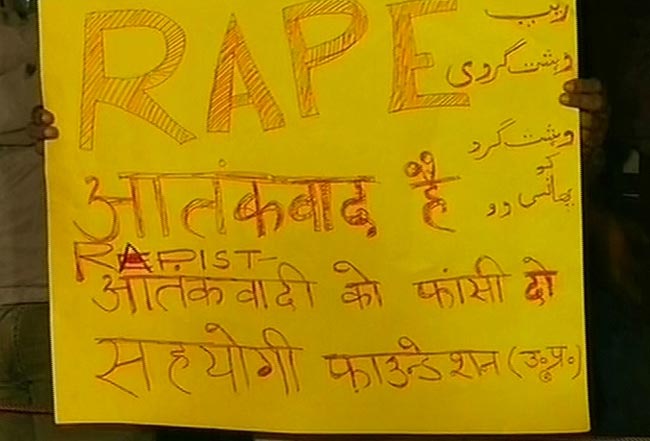 RAPE
ریپ
دہشت گردی
دہشت گرد
کو
پھانسی دو
आतंकवाद है
RAPIST-
आतंकवादी को फांसी दो
सहयोगी फ़ाउन्डेशन (उ॰प्र॰)